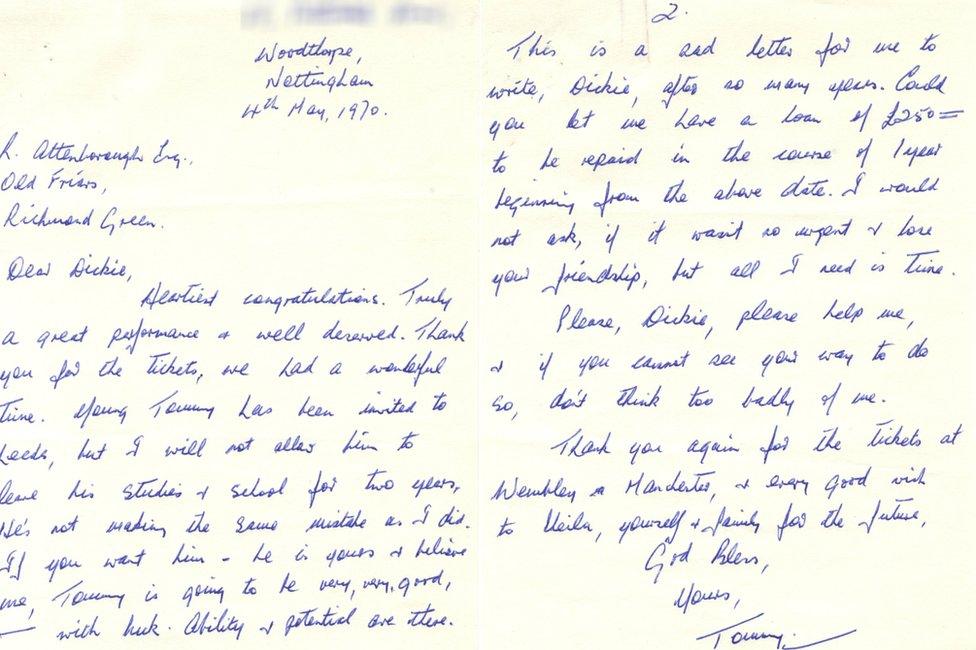 Woodthorpe,
Nottingham
4th May, 1970.
R. Attenborough Esq.,
Old Friars,
Richmond Green.
Dear Dickie,
Heartiest congratulations. Truly
a great performance & well deserved. Thank
you for the tickets, we had a wonderful
time. Young Tommy has been invited to
Leeds, but I will not allow him to
leave his studies & school for two years,
He's not making the same mistake as I did.
If you want him – he is yours & believe
me, Tommy is going to be very, very, good,
— with luck. Ability & potential are there.
2.
This is a sad letter for me to
write, Dickie, after so many years. Could
you let me have a loan of £250=
to be repaid in the course of 1 year
beginning from the above date. I would
not ask, if it wasn't so urgent & lose
your friendship, but all I need is time.
Please, Dickie, please help me,
& if you cannot see your way to do
so, don't think too badly of me.
Thank you again for the tickets at
Wembley & Manchester, & every good wish
to Sheila, yourself & family for the future,
God Bless,
Yours,
Tommy.